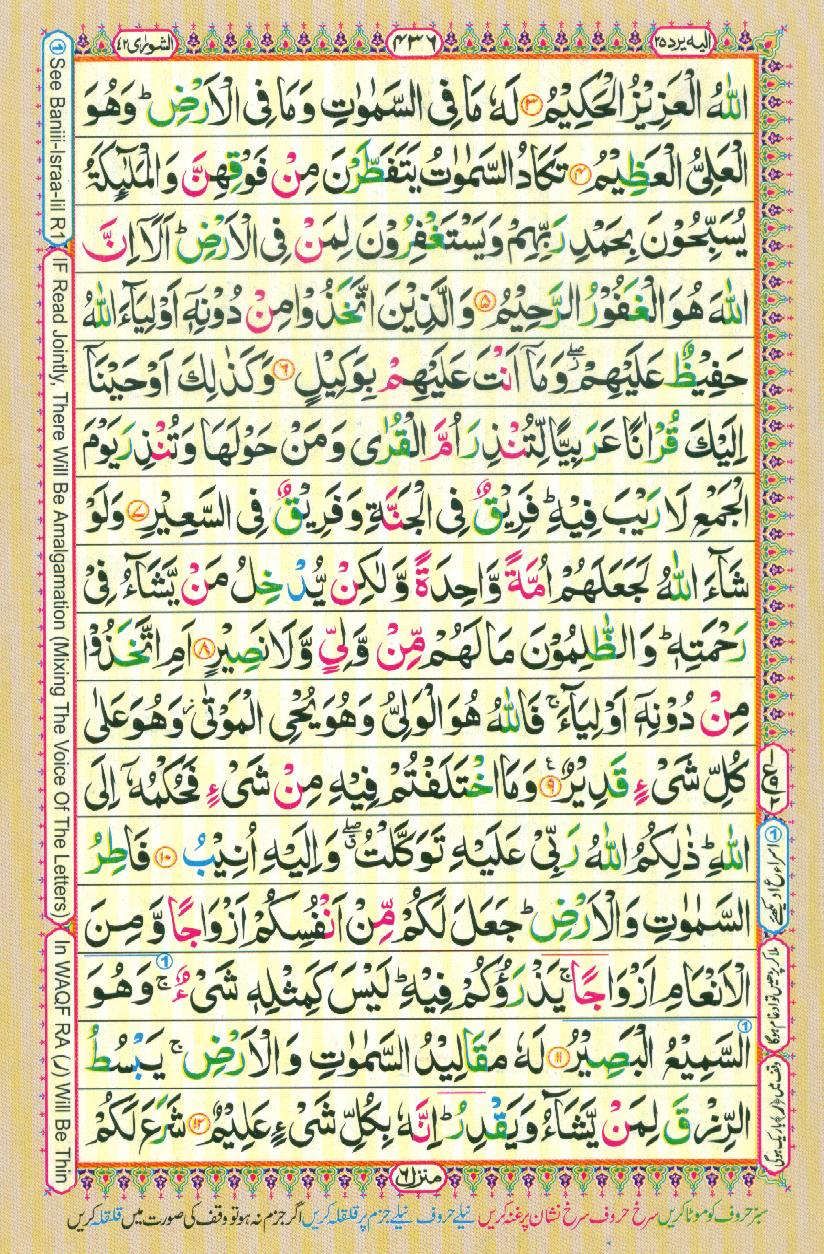 الیه یرد ۲۵
۴۳۶
الشورٰی ۴۲
اللّٰهُ الْعَزِیْزُ الْحَكِیْمُ ۳ لَهٗ مَا فِی السَّمٰوٰتِ وَمَا فِی الْاَرْضِ ؕ وَهُوَ
الْعَلِیُّ الْعَظِیْمُ ۴ تَكَادُ السَّمٰوٰتُ یَتَفَطَّرْنَ مِنْ فَوْقِهِنَّ وَالْمَلٰٓئِكَةُ
یُسَبِّحُوْنَ بِحَمْدِ رَبِّهِمْ وَیَسْتَغْفِرُوْنَ لِمَنْ فِی الْاَرْضِ ؕ اَلَاۤ اِنَّ
اللّٰهَ هُوَ الْغَفُوْرُ الرَّحِیْمُ ۵ وَالَّذِیْنَ اتَّخَذُوْا مِنْ دُوْنِهٖۤ اَوْلِیَآءَ اللّٰهُ
حَفِیْظٌ عَلَیْهِمْ ۖ وَمَاۤ اَنْتَ عَلَیْهِمْ بِوَكِیْلٍ ۶ وَكَذٰلِكَ اَوْحَیْنَاۤ
اِلَیْكَ قُرْاٰنًا عَرَبِیًّا لِّتُنْذِرَ اُمَّ الْقُرٰی وَمَنْ حَوْلَهَا وَتُنْذِرَ یَوْمَ
الْجَمْعِ لَا رَیْبَ فِیْهِ ؕ فَرِیْقٌ فِی الْجَنَّةِ وَفَرِیْقٌ فِی السَّعِیْرِ ۷ وَلَوْ
شَآءَ اللّٰهُ لَجَعَلَهُمْ اُمَّةً وَّاحِدَةً وَّلٰكِنْ یُّدْخِلُ مَنْ یَّشَآءُ فِیْ
رَحْمَتِهٖ ؕ وَالظّٰلِمُوْنَ مَا لَهُمْ مِّنْ وَّلِیٍّ وَّلَا نَصِیْرٍ ۸ اَمِ اتَّخَذُوْا
مِنْ دُوْنِهٖۤ اَوْلِیَآءَ ۚ فَاللّٰهُ هُوَ الْوَلِیُّ وَهُوَ یُحْیِ الْمَوْتٰی ؗ وَهُوَ عَلٰی
كُلِّ شَیْءٍ قَدِیْرٌ ۹ وَمَا اخْتَلَفْتُمْ فِیْهِ مِنْ شَیْءٍ فَحُكْمُهٗۤ اِلَی
اللّٰهِ ؕ ذٰلِكُمُ اللّٰهُ رَبِّیْ عَلَیْهِ تَوَكَّلْتُ ۖ وَاِلَیْهِ اُنِیْبُ ۱۰ فَاطِرُ
السَّمٰوٰتِ وَالْاَرْضِ ؕ جَعَلَ لَكُمْ مِّنْ اَنْفُسِكُمْ اَزْوَاجًا وَّمِنَ
الْاَنْعَامِ اَزْوَاجًا ۚ یَذْرَؤُكُمْ فِیْهِ ؕ لَیْسَ كَمِثْلِهٖ شَیْءٌ ۚ وَهُوَ
السَّمِیْعُ الْبَصِیْرُ ۱۱ لَهٗ مَقَالِیْدُ السَّمٰوٰتِ وَالْاَرْضِ ۚ یَبْسُطُ
الرِّزْقَ لِمَنْ یَّشَآءُ وَیَقْدِرُ ؕ اِنَّهٗ بِكُلِّ شَیْءٍ عَلِیْمٌ ۱۲ شَرَعَ لَكُمْ
منزل ۶
سبز حروف کو موٹا کریں سرخ حروف سرخ نشان پر غنہ کریں نیلے حروف نیلے جزم پر قلقلہ کریں اگر جزم نہ ہو تو وقف کی صورت میں قلقلہ کریں
① See Baniii-Israa-Iil R1
IF Read Jointly, There Will Be Amalgamation (Mixing The Voice Of The Letters)
In WAQF RA (ر) Will Be Thin